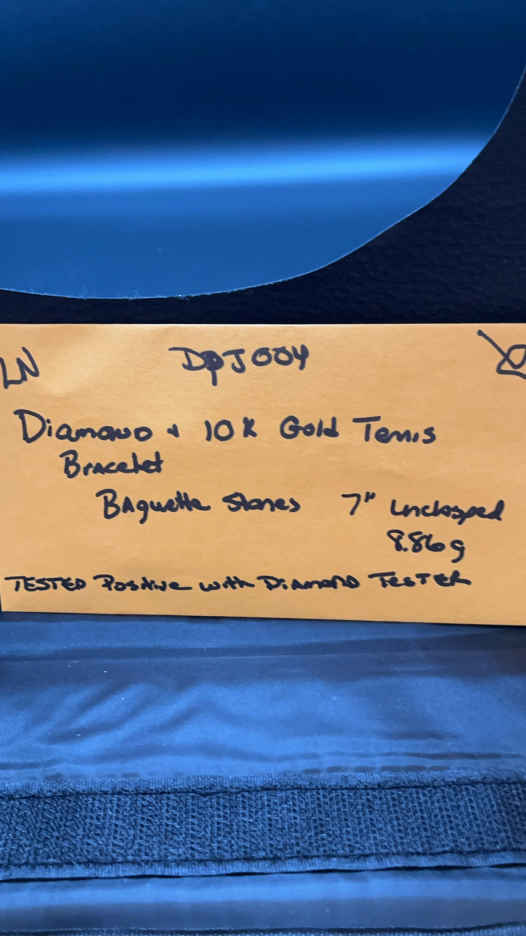 LN DPJ004
Diamond + 10K Gold Tennis
Bracelet
Baguette Stones 7" Unclasped
8.86g
TESTED Positive with Diamond TESTER